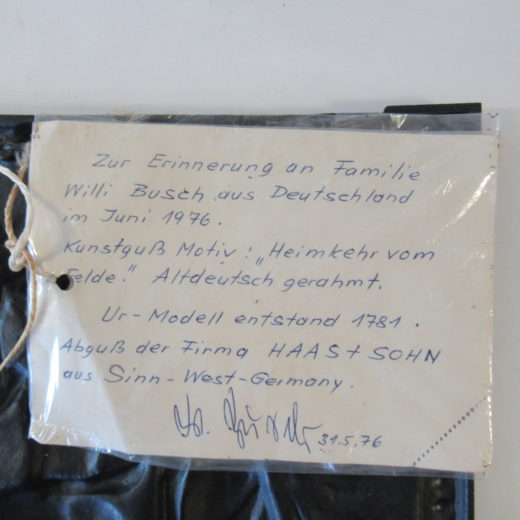 Zur Erinnerung an Familie
Willi Busch aus Deutschland
im Juni 1976.
Kunstguß Motiv: „Heimkehr vom
Felde." Altdeutsch gerahmt.
Ur-Modell entstand 1781.
Abguß der Firma HAAS + SOHN
aus Sinn-West-Germany.
W. Busch 31.5.76